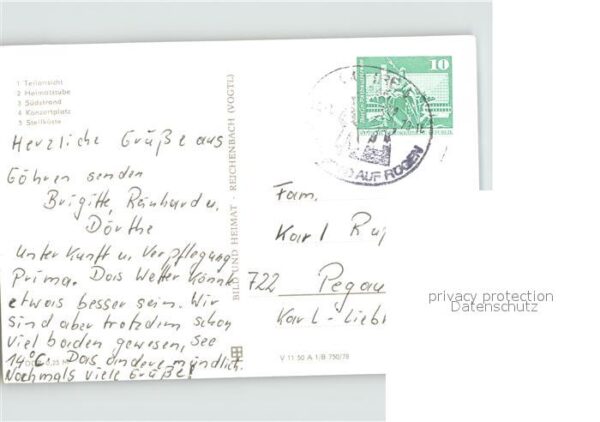 1 Teilansicht
2 Heimatstube
3 Südstrand
4 Konzertplatz
5 Steilküste
Herzliche Grüße aus
Göhren senden
Brigitte, Reinhard u.
Dörthe
Unterkunft u. Verpflegung
Prima. Das Wetter könnte
etwas besser sein. Wir
sind aber trotzdem schon
viel baden gewesen, See
14°C. Das andere mündlich.
Nochmals viele Grüße!
BILD UND HEIMAT · REICHENBACH (VOGTL)
10
AUF RÜGEN
Fam.
Karl
722 Pegau
Karl-Liebk
V 11 50 A 1/B 750/78
privacy protection
Datenschutz